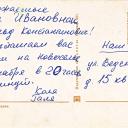 жаемые
Ивановна
Константинович!
глашаем вас
на новоселье
кабря в 20 часов
Коля
Галя
Наш
ул. Веден
д. 15 кв